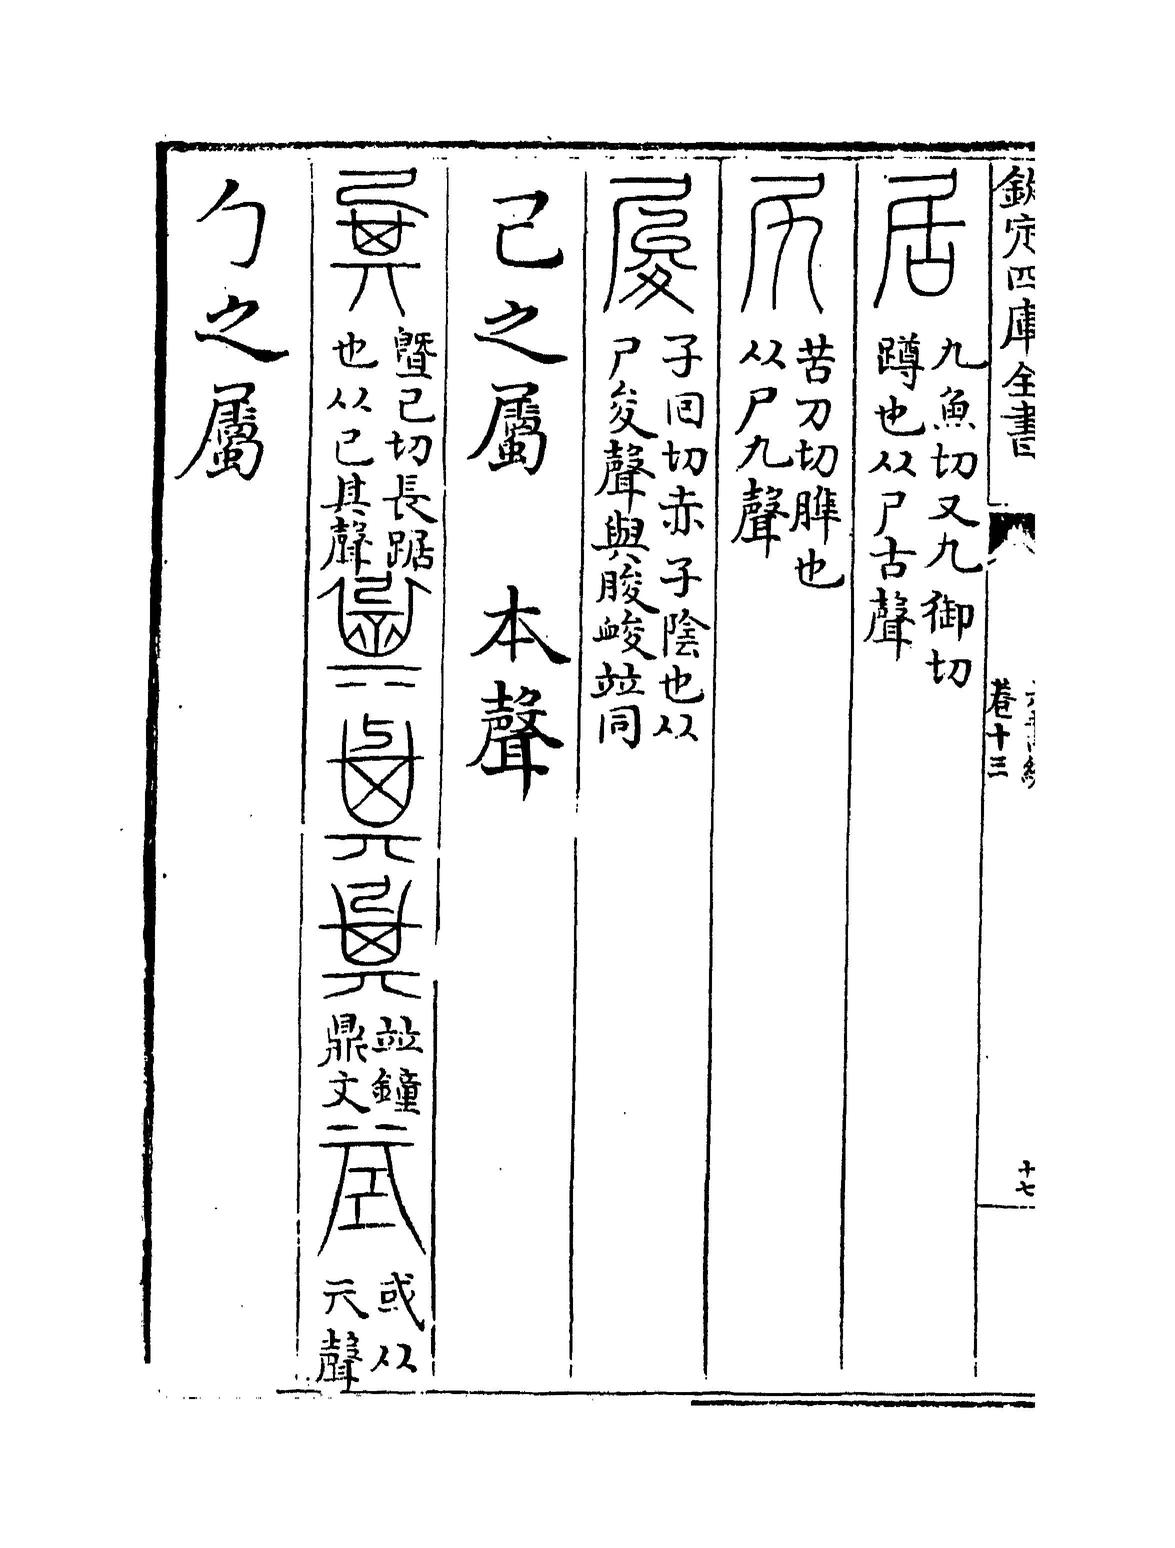 欽定四庫全書
卷十三
十七
居
九魚切又九御切
蹲也从尸古聲
尻
苦刀切脽也
从尸九聲
子回切赤子陰也从
尸夋聲與朘峻竝同
己之屬 本聲
㠱
曁己切長踞
也从己其聲
竝鐘
鼎文
或从
亓聲
勹之屬